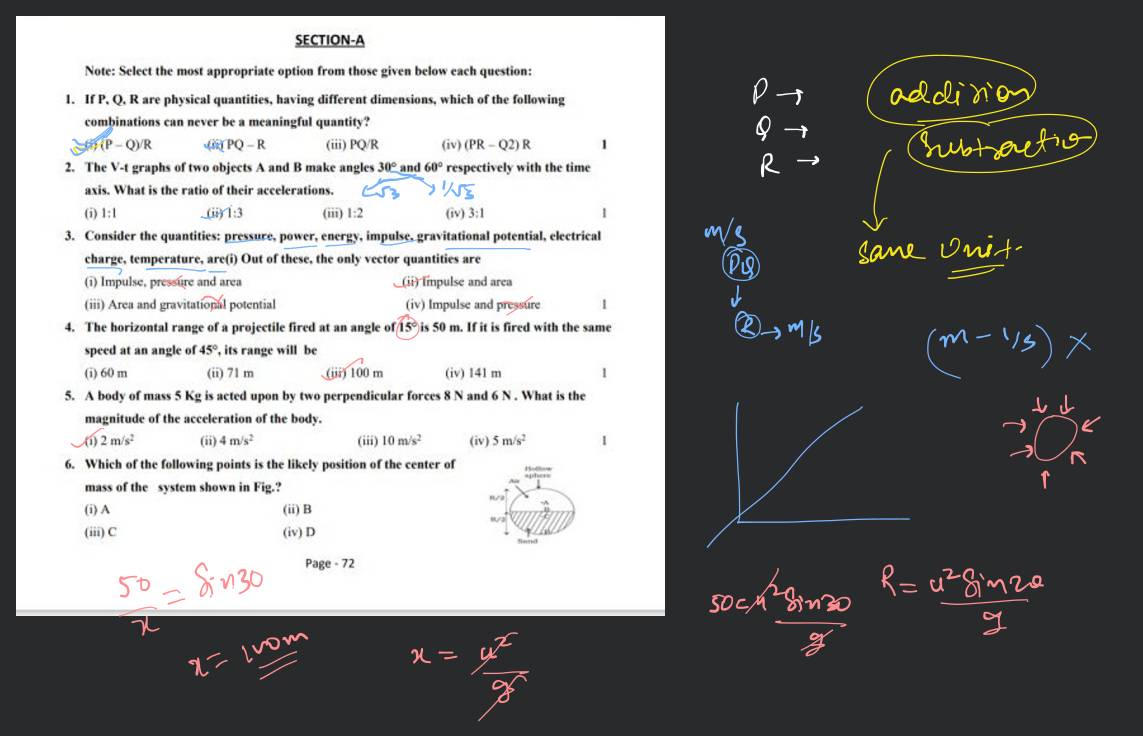 SECTION-A
Note: Select the most appropriate option from those given below each question:
1. If P, Q, R are physical quantities, having different dimensions, which of the following
combinations can never be a meaningful quantity?
(i) (P – Q)/R (ii) PQ – R (iii) PQ/R (iv) (PR – Q2) R 1
2. The V-t graphs of two objects A and B make angles 30° and 60° respectively with the time
axis. What is the ratio of their accelerations.
√3 1/√3
(i) 1:1 (ii) 1:3 (iii) 1:2 (iv) 3:1 1
3. Consider the quantities: pressure, power, energy, impulse, gravitational potential, electrical
charge, temperature, are(i) Out of these, the only vector quantities are
(i) Impulse, pressure and area (ii) Impulse and area
(iii) Area and gravitational potential (iv) Impulse and pressure 1
4. The horizontal range of a projectile fired at an angle of 15° is 50 m. If it is fired with the same
speed at an angle of 45°, its range will be
(i) 60 m (ii) 71 m (iii) 100 m (iv) 141 m 1
5. A body of mass 5 Kg is acted upon by two perpendicular forces 8 N and 6 N . What is the
magnitude of the acceleration of the body.
(i) 2 m/s² (ii) 4 m/s² (iii) 10 m/s² (iv) 5 m/s² 1
6. Which of the following points is the likely position of the center of
mass of the system shown in Fig.?
(i) A (ii) B
(iii) C (iv) D
Hollow
sphere
Air
R/2
A
B
R/2
Sand
Page - 72
50/x = Sin30
x = 100m
x = u²/g
P →
Q →
R →
addision
Subtraction
Same Unit
m/s
PQ
R → m/s
(m – 1/s) ×
R = u² Sin2θ/g